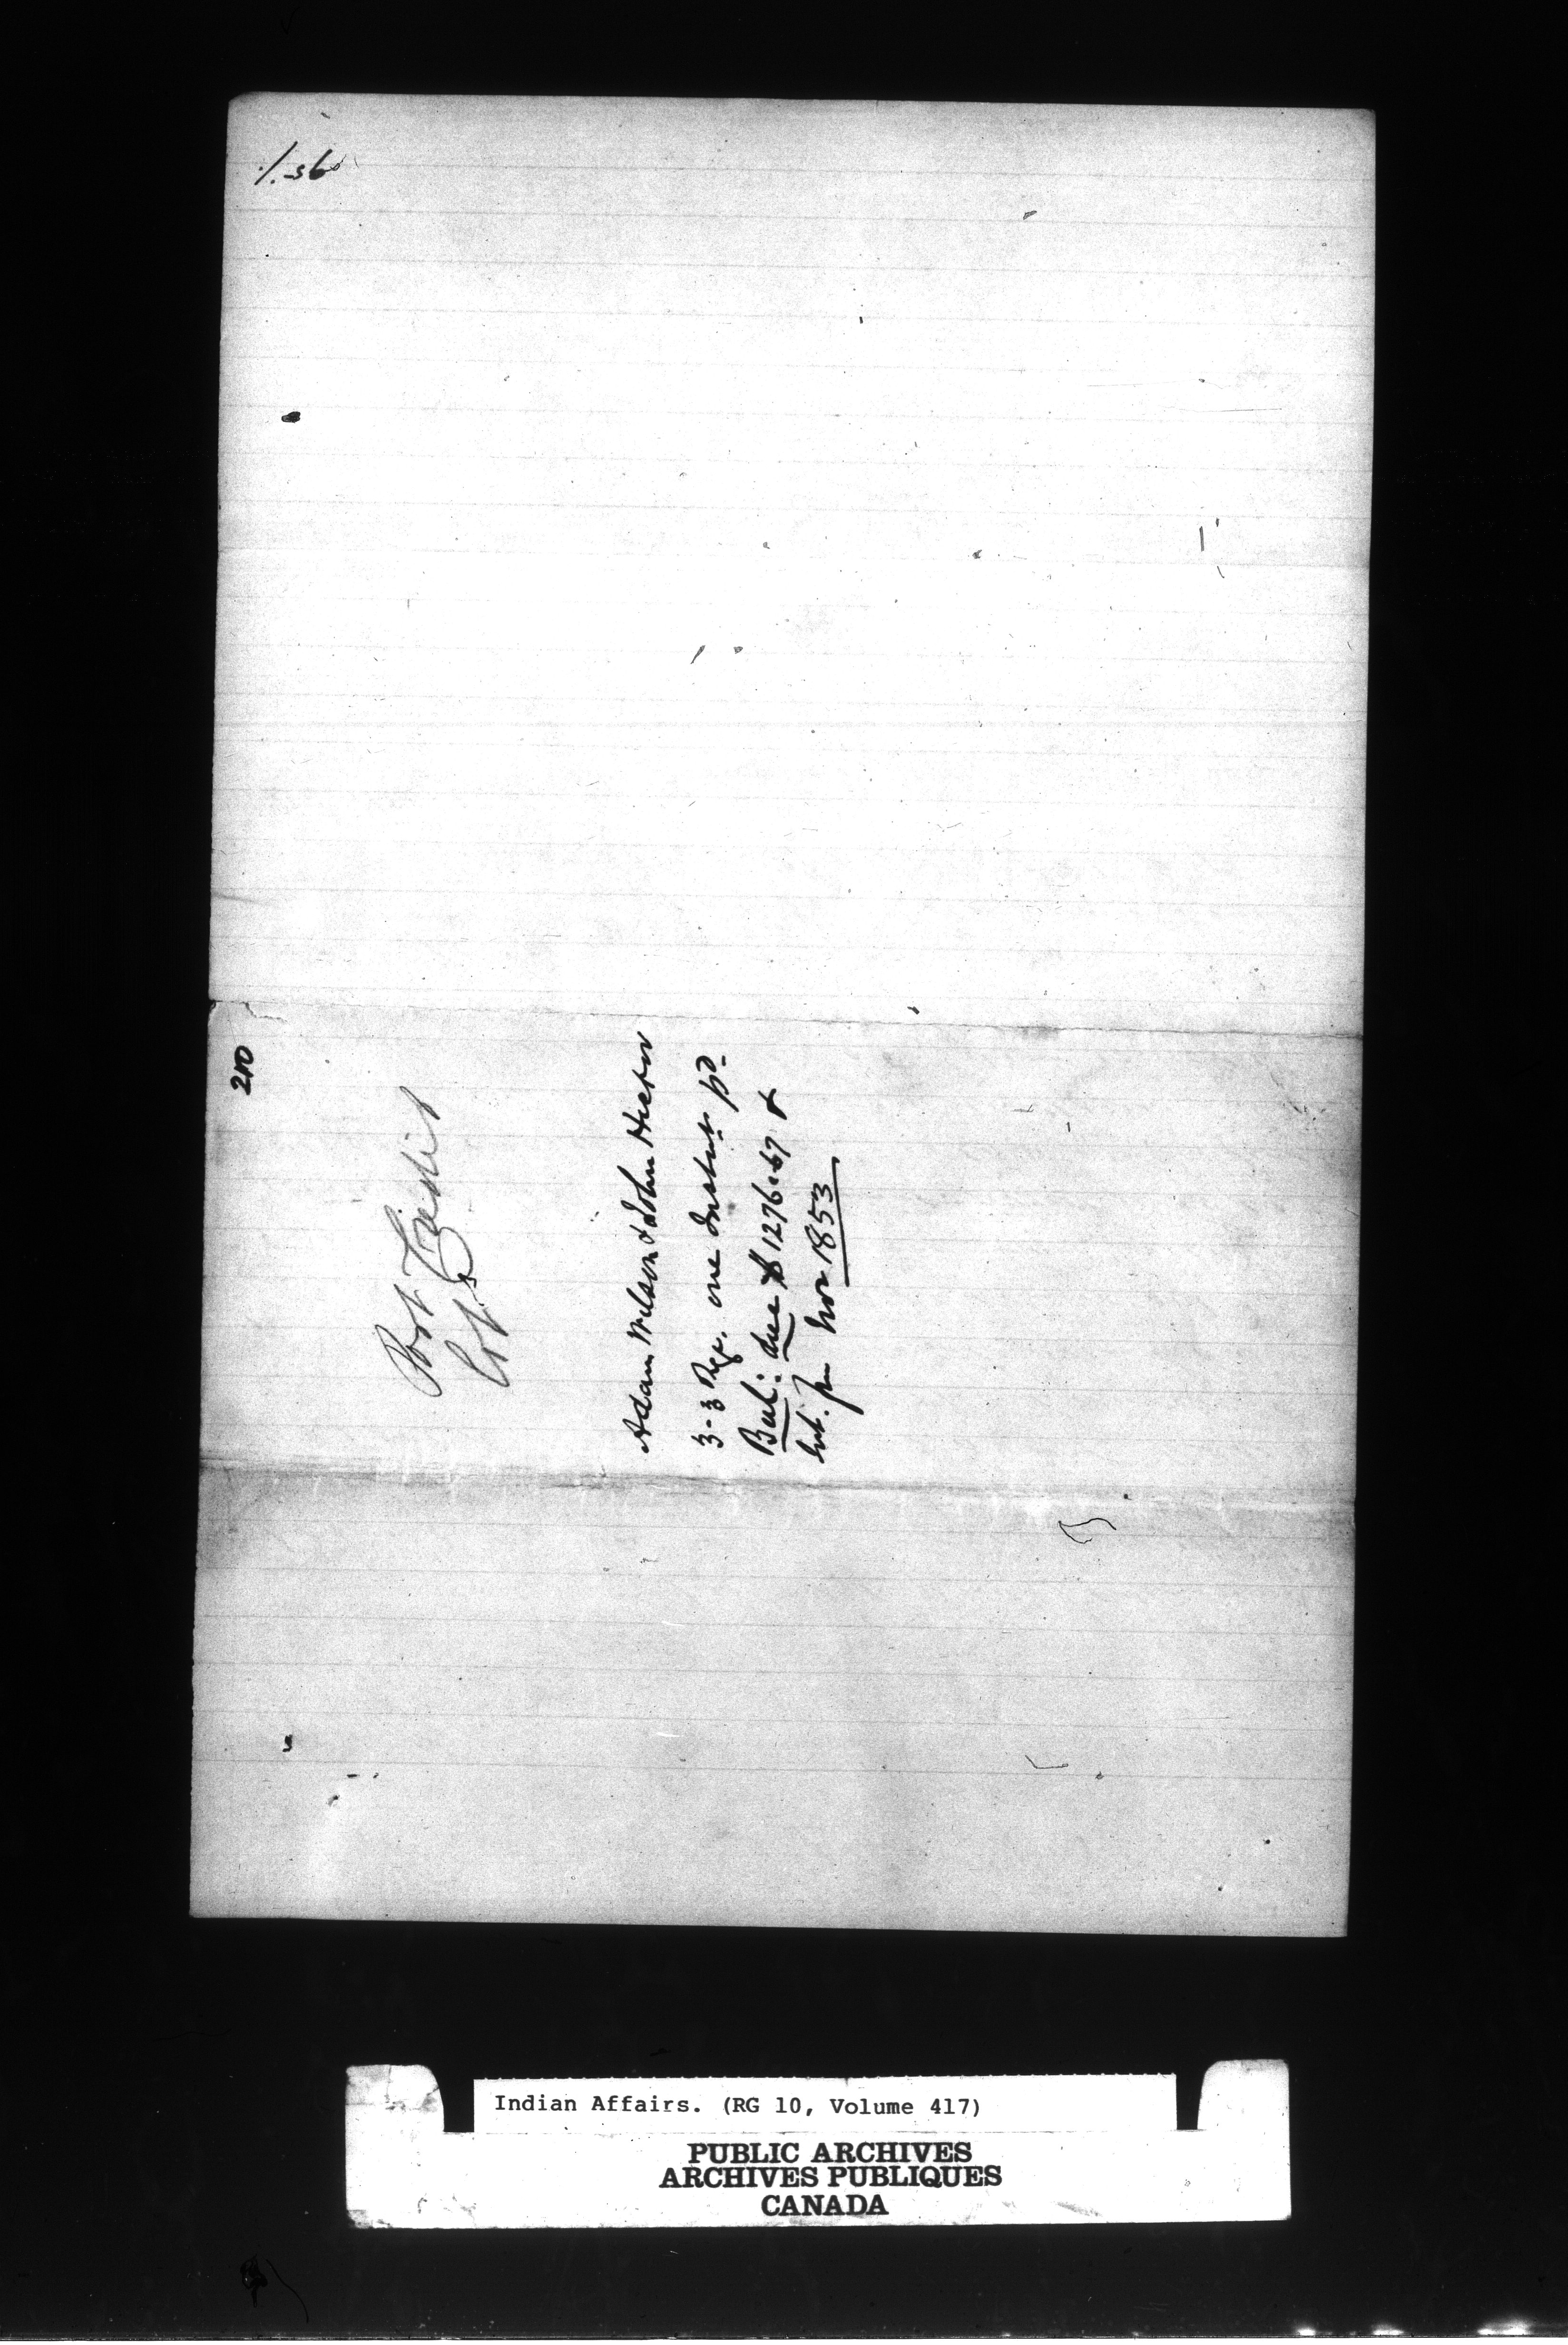 210
Port Credit
Lots
Adam Wilson & John Hector
3-3 Rge. one Instmt. pd
Bal: due $1276.67 &
Int. fm Nov 1853
Indian Affairs. (RG 10, Volume 417)
PUBLIC ARCHIVES
ARCHIVES PUBLIQUES
CANADA